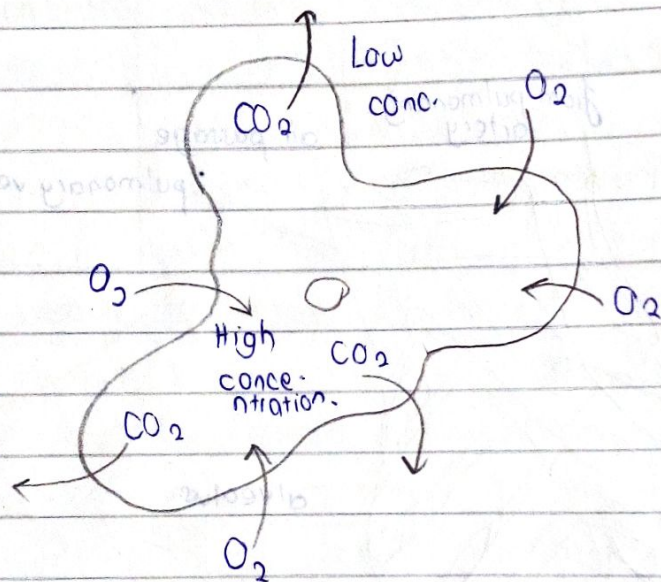 Low
conc.
CO2
O2
O2
O2
High
conce-
ntration.
CO2
CO2
O2